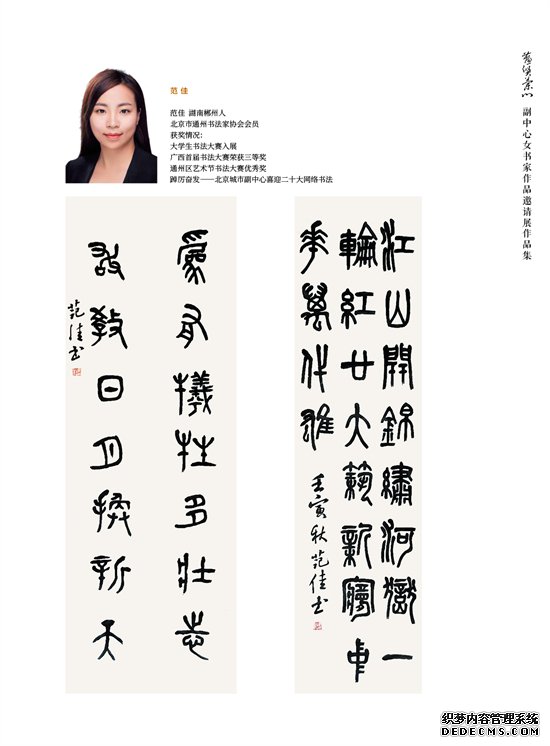 范佳
范佳 湖南郴州人
北京市通州书法家协会会员
获奖情况：
大学生书法大赛入展
广西首届书法大赛荣获三等奖
通州区艺术节书法大赛优秀奖
踔厉奋发——北京城市副中心喜迎二十大网络书法
副中心女书家作品邀请展作品集
江山開錦繡河嶽一
輪紅廿大新夢中
華萬代雄
壬寅秋范佳书
爲有犧牲多壯志
敢教日月換新天
范佳书
织梦内容管理系统
DEDECMS.COM